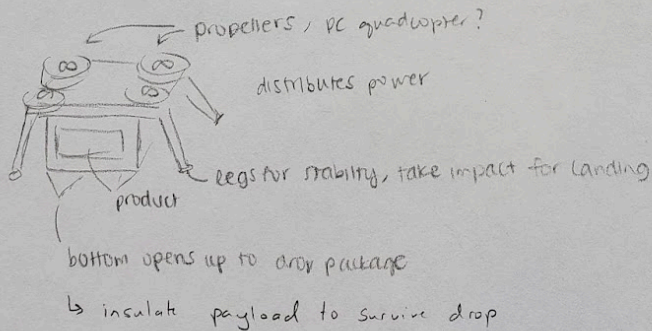 propellers, DC quadcopter?
distributes power
legs for stability, take impact for landing
product
bottom opens up to drop package
↳ insulate payload to survive drop